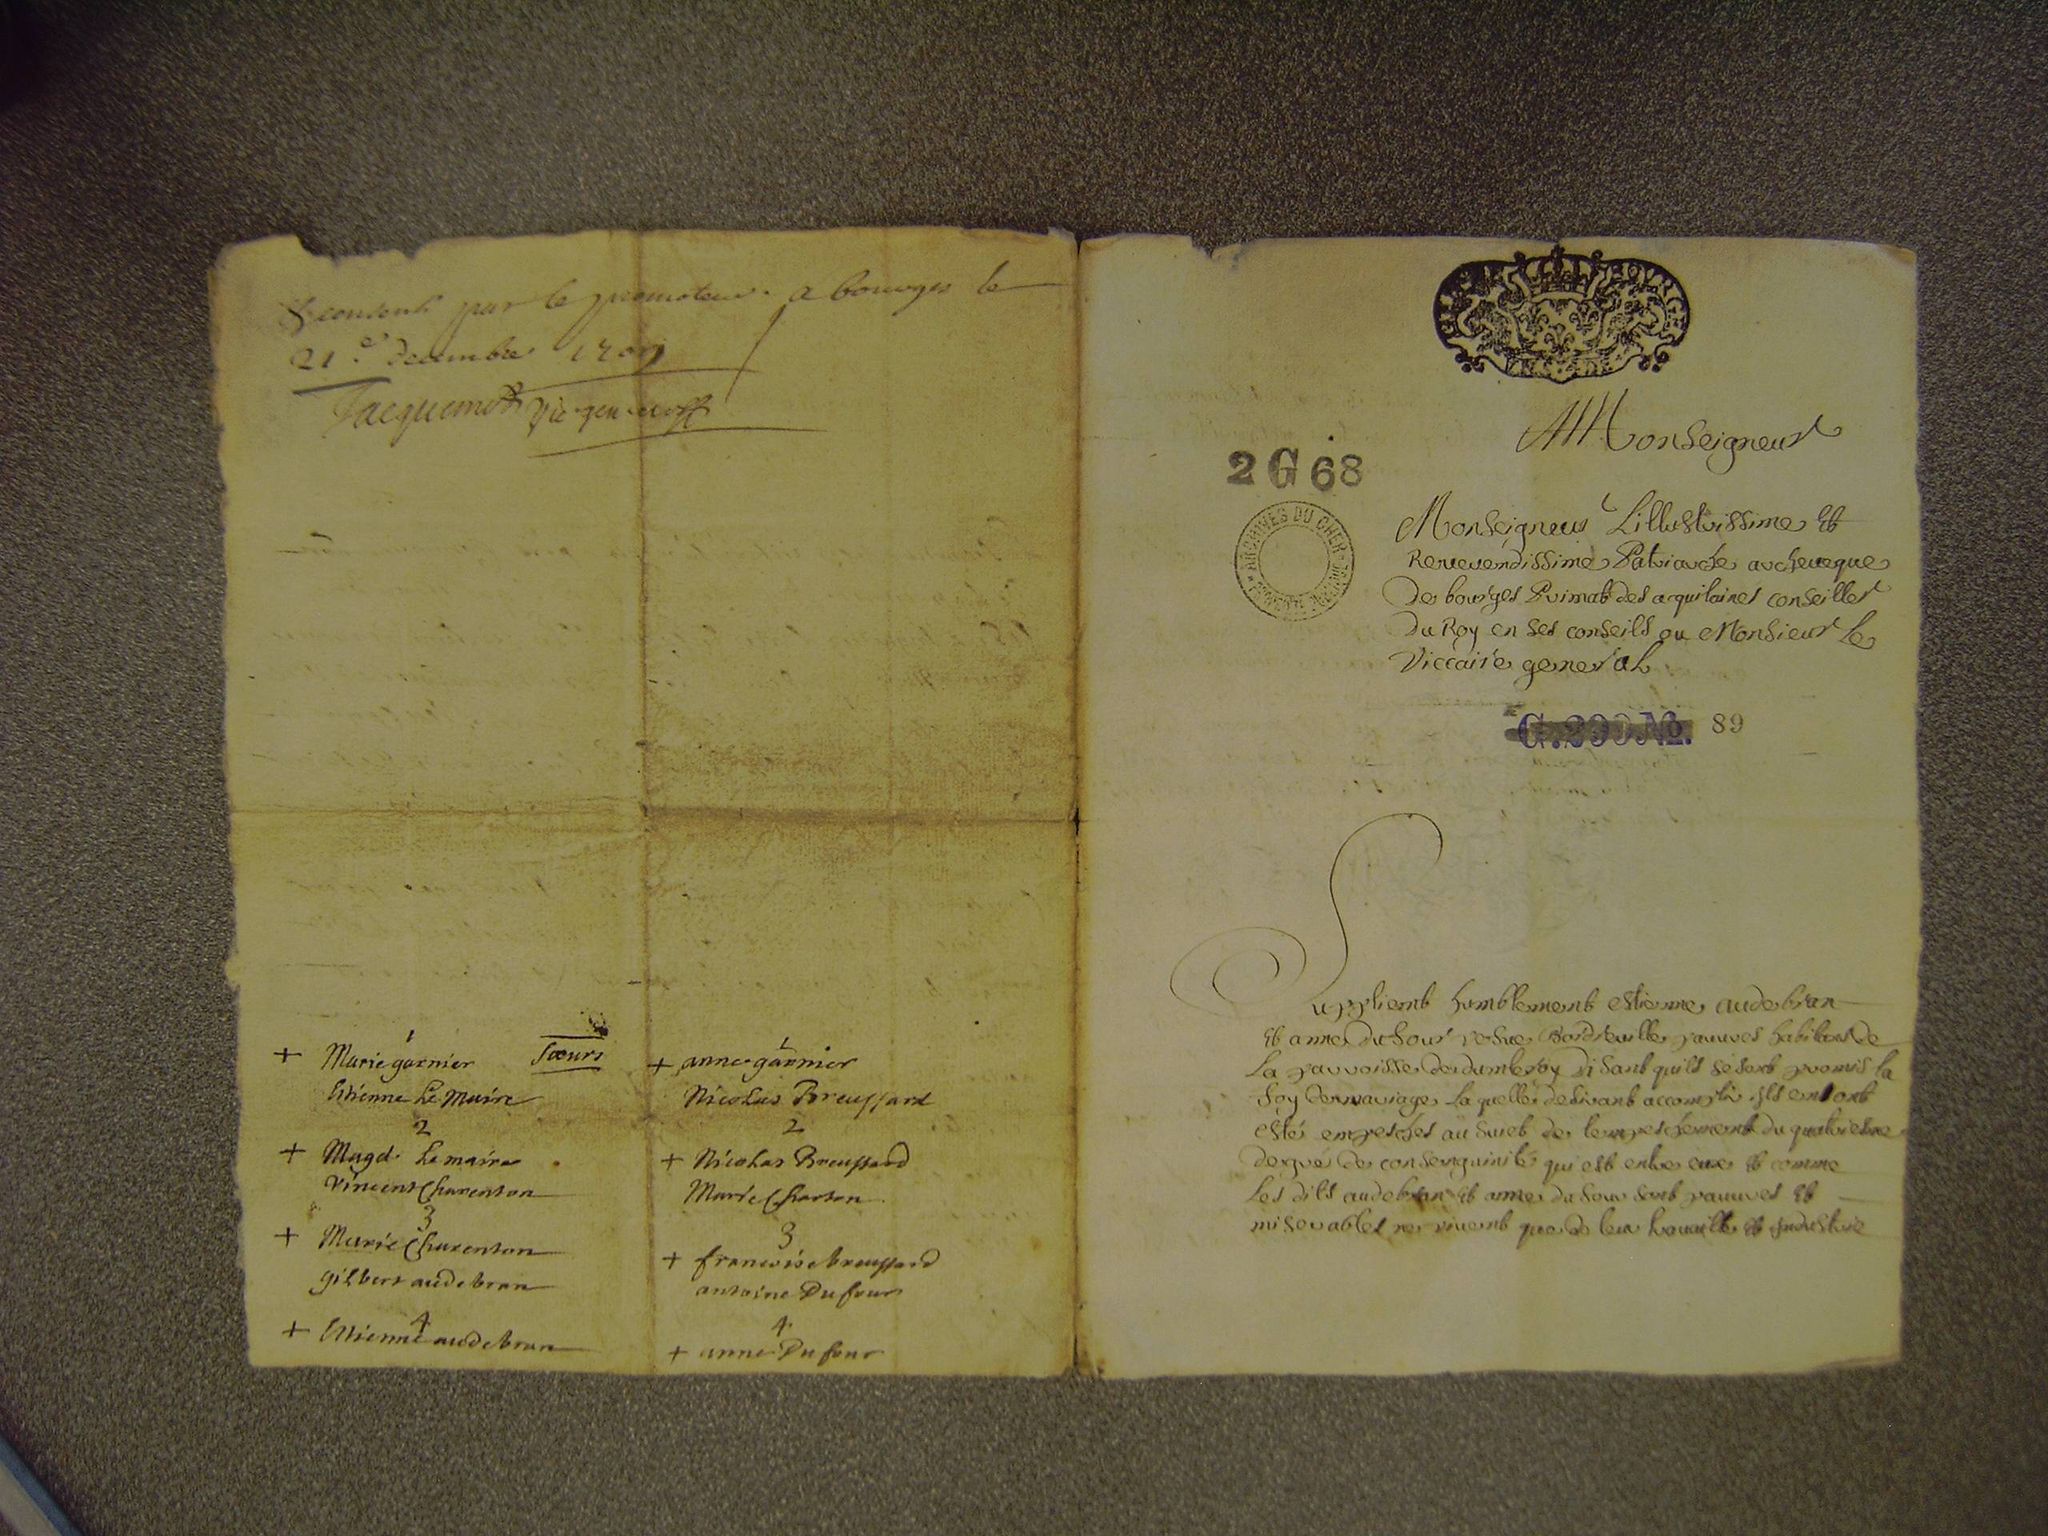 consenti par le promoteur. a bourges le
21e decembre
Jacquemet vic gen. et off
1
+ Marie garnier Sœurs
Estienne Le Maire
2
+ Magd. Le maire
Vincent Charenton
3
+ Marie Charenton
gilbert audebran
4
+ Estienne audebran
1
+ anne garnier
Nicolas Breussard
2
+ Nicolas Breussard
Marie Charton
3
+ francoise breussard
antoine Dufour
4
+ anne Dufour
A Monseigneur
2 G 68
ARCHIVES DU CHER
Monseigneur Lillustrissime Et
Rerverendissime Patriarche archeveque
De bourges Primat des acquitaines conseiller
Du Roy en ses conseils ou Monsieur Le
Viccaire general
G.299 No. 89
Supplient humblement estienne audebran
Et anne du four pauvres habitans de
La parroisse de dunleroy Disant quils se sont promis la
foy de mariage La quelle desirant accomplir ils en ont
esté empesches au suiet de lempeschement du quatriesme
degré de consenguinité qui est entre eux Et comme
Les dits audebran Et anne du four sont pauvres Et
miserables ne vivent que de leur travaille Et Industrie